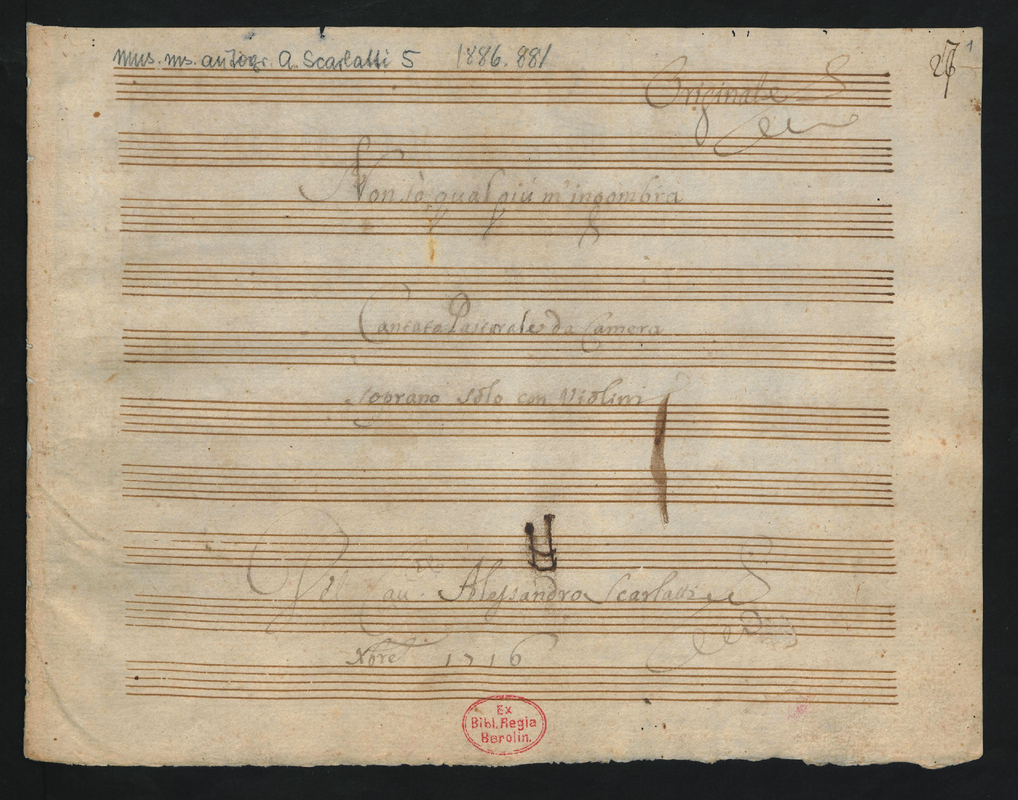 mus. ms. autogr. A. Scarlatti 5 1886. 881
27 1
Originale
Non sò qual più m'ingombra
Cantata Pastorale da Camera
Soprano solo con Violini
Del Cau. Alessandro Scarlatti
Xbre 1716
Ex
Bibl. Regia
Berolin.